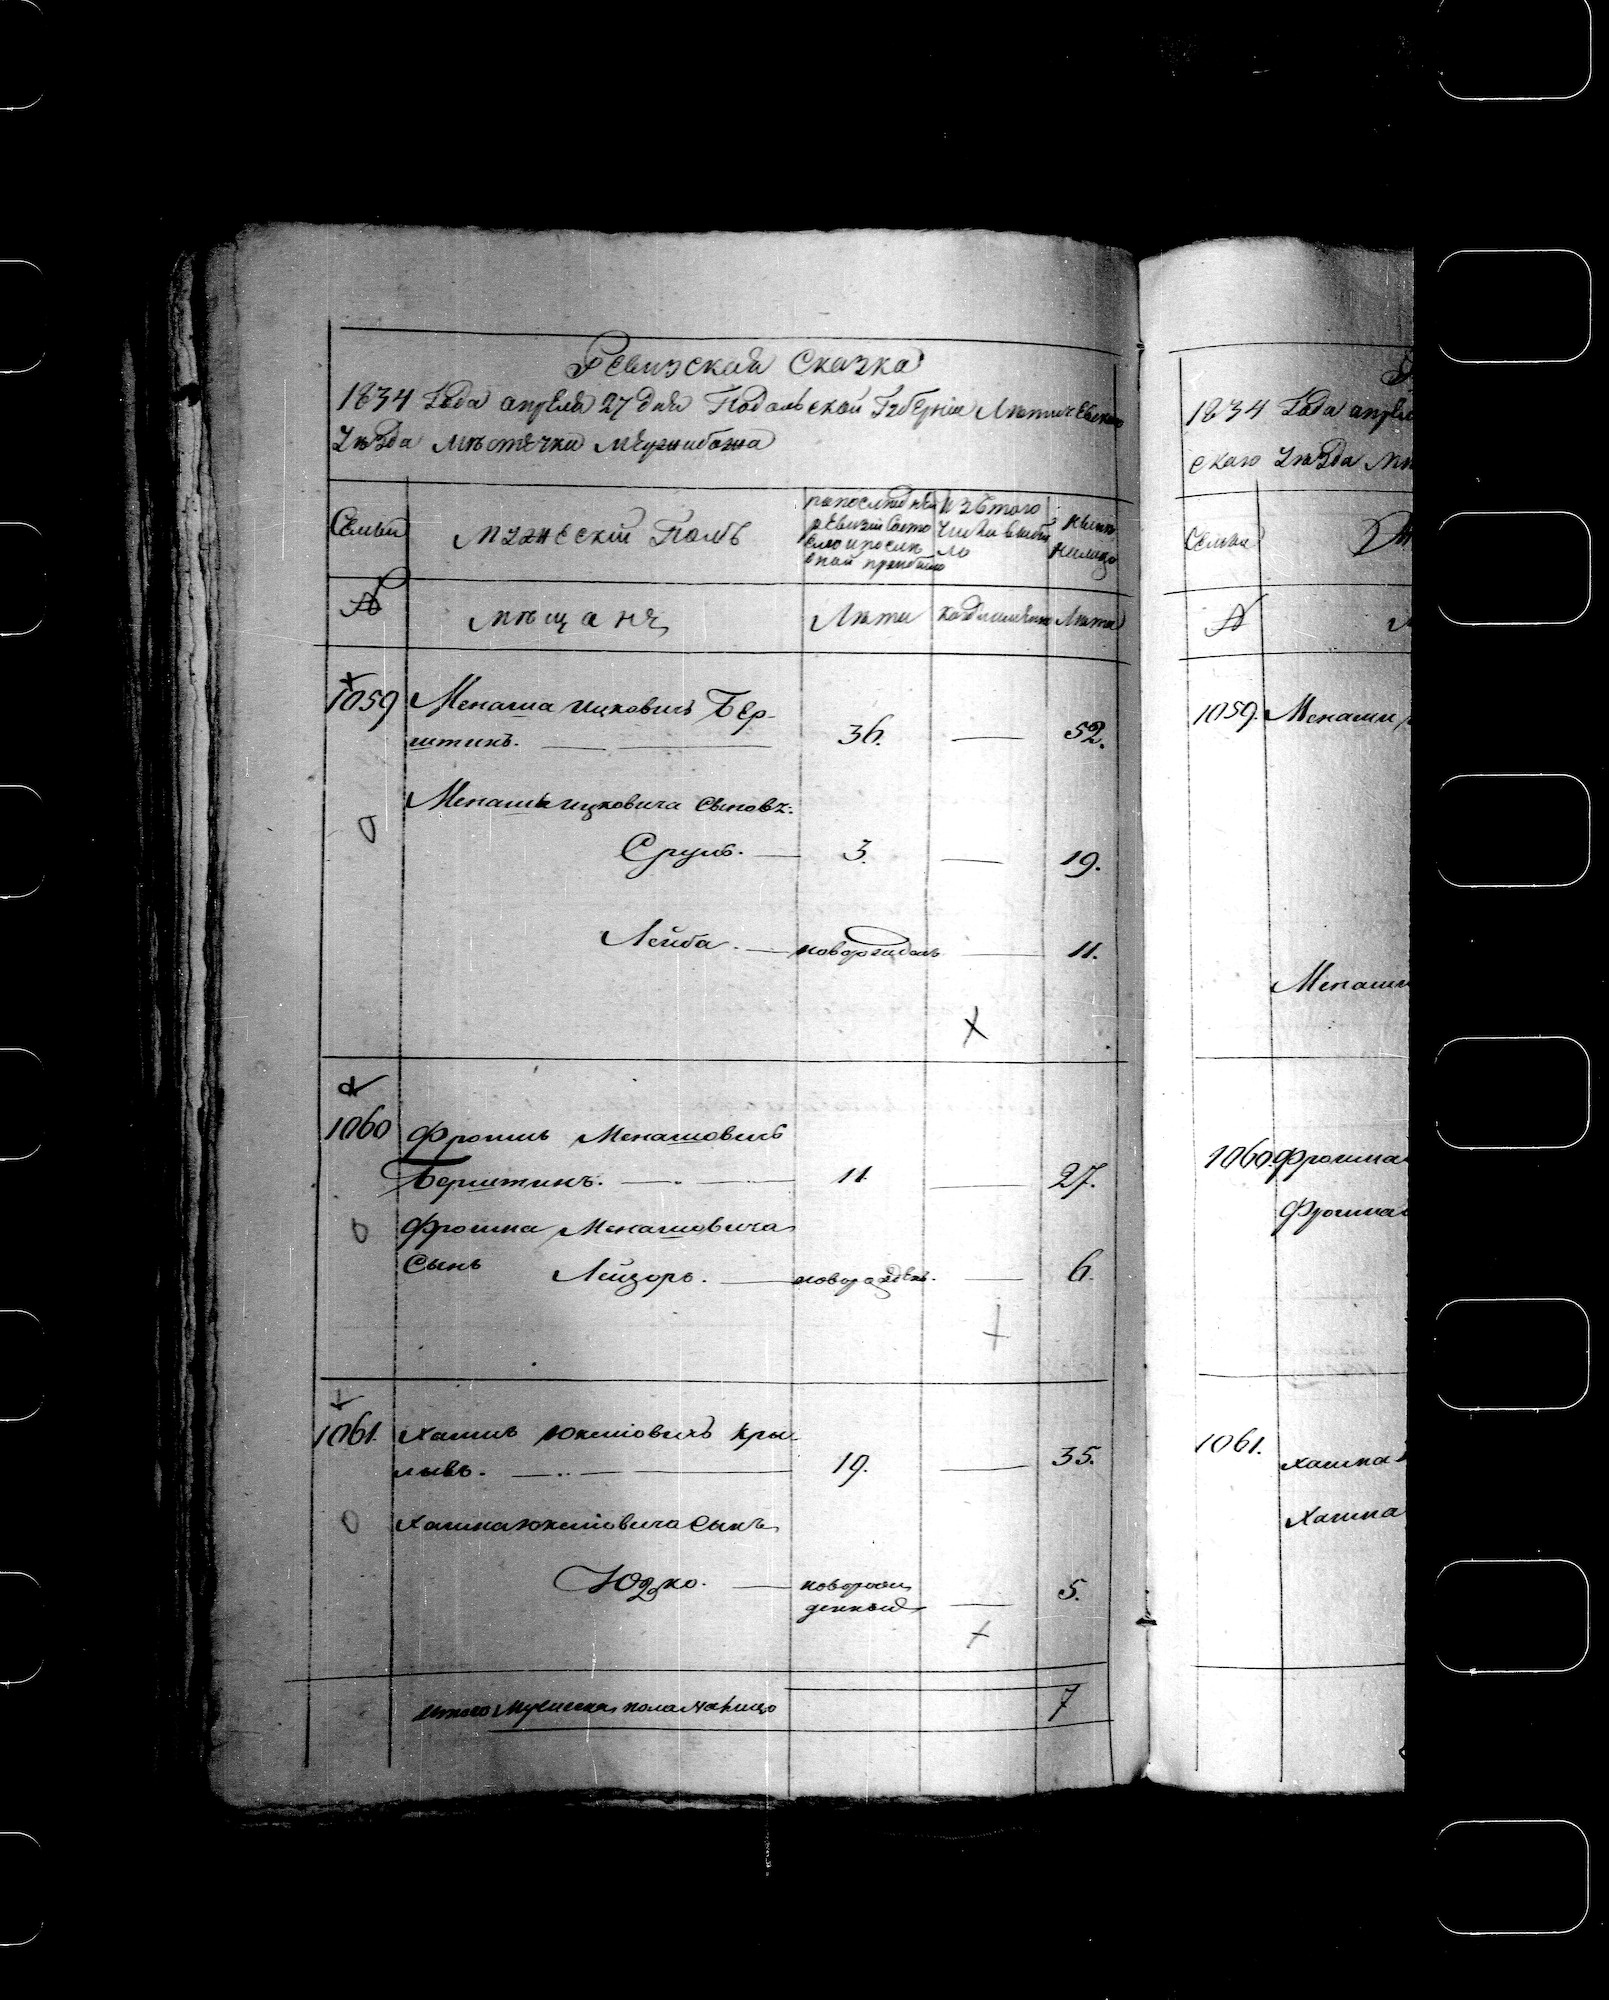 Ревизская Сказка
1834 Года апреля 27 дня Подольской Губернии Летичевского
Уезда местечка Меджибожа
Семьи
Мужеский Полъ
по последней ревизии состояло и после оной прибыло
Изъ того числа выбыло
Ныне на лицо
№
Мещане
Лета
Когда именно
Лета
1059
Менаша Ицковичъ Бер-
штинъ.
36.
52.
Менаши Ицковича сыновья:
Сруль.
3.
19.
Лейба.
новорожден
11.
1060
Фроимъ Менашовичъ
Берштинъ.
11.
27.
Фроима Менашовича
Сынъ Лейзоръ.
новорожден.
6.
1061.
Хаимъ
Кры
19.
35.
Хаима
Сынъ
Юдко.
новорож
денный
5.
Итого мужеска пола налицо
7
1834 Года апреля
скаго Уезда
Семьи
№
1059. Менаши
Менаши
1060. Фроима
Фроима
1061.
Хаима
Хаима